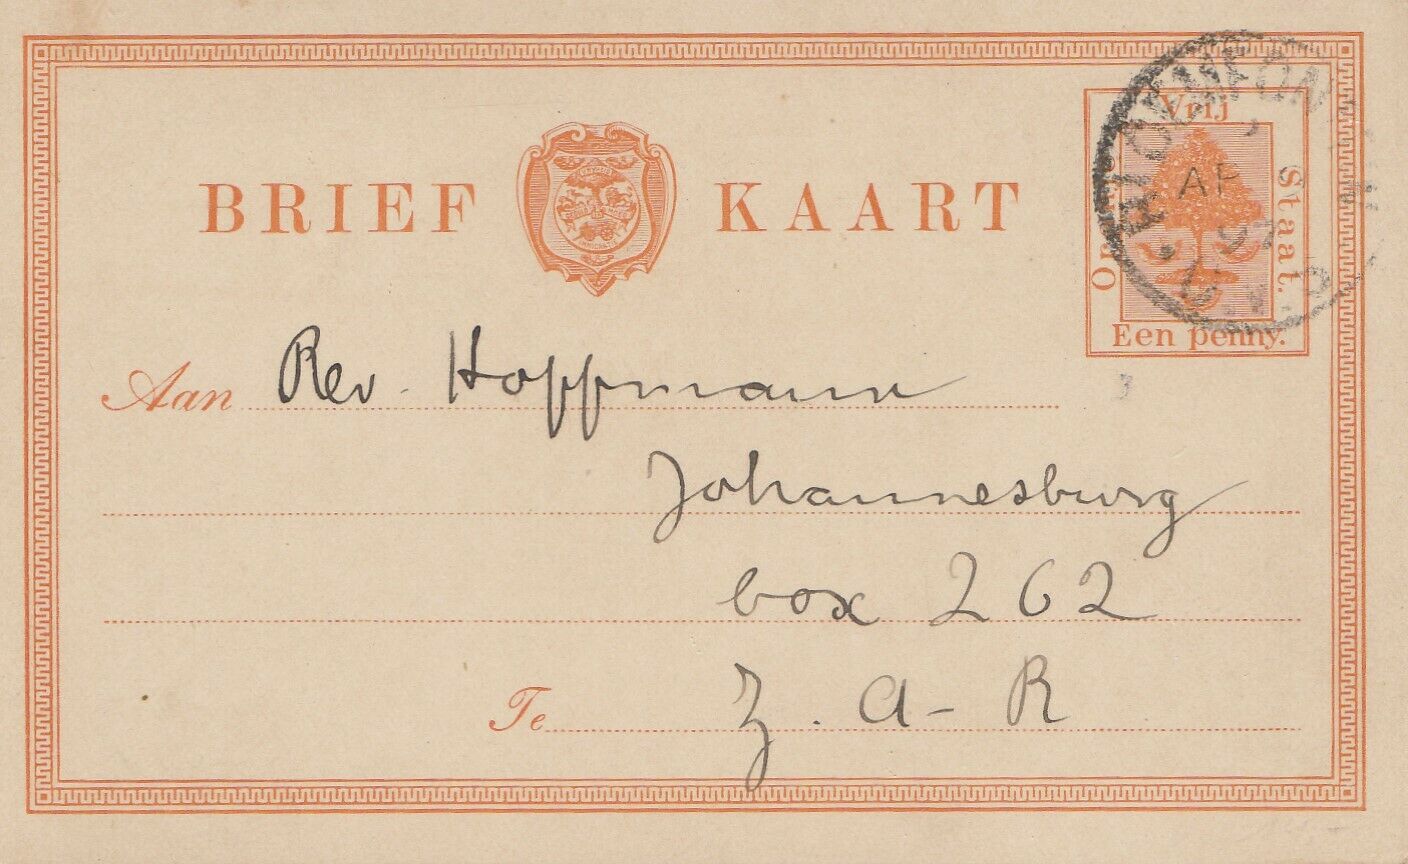 BRIEF KAART
Oranje Vrij Staat.
Een penny.
AP
Aan Rev. Hoffmann
Johannesburg
box 262
Te Z. A - R